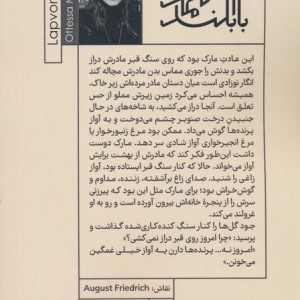 Lapvon
Ottessa M
این عادتِ مارک بود که روی سنگ قبر مادرش دراز
بکشد و بدنش را جوری مماس بدن مادرش مچاله کند
انگار نوزادی است میان دستان مادر مرده‌اش زیر خاک.
همیشه احساس می‌کرد زمین زیرش مملو از حس
تعلق است. آنجا دراز می‌کشید، به شاخه‌های در حال
جنبیدن درخت صنوبر چشم می‌دوخت و به آواز
پرنده‌ها گوش می‌داد. ممکن بود مرغ زنبورخوار یا
مرغ انجیرخواری آواز شادی سر دهد. مارک دوست
داشت این‌طور فکر کند که مادرش از بهشت برایش
آواز می‌خواند. حالا که کنار سنگ قبر ایستاده بود، آواز
زاغی را شنید. صدای زاغ برآشفته، زننده، مداوم و
گوش‌خراش بود؛ برای مارک مثل این بود که پیرزنی
سرش را از پنجرهٔ خانه‌اش بیرون آورده است و رو به او
غرولند می‌کند.
جود گل‌ها را کنار سنگ کنده‌کاری‌شده گذاشت و
پرسید: «چرا امروز روی قبر دراز نمی‌کشی؟»
«امروز نه... پرنده‌ها دارن یه آواز خیلی غمگین
می‌خونن.»
نقاش: August Friedrich